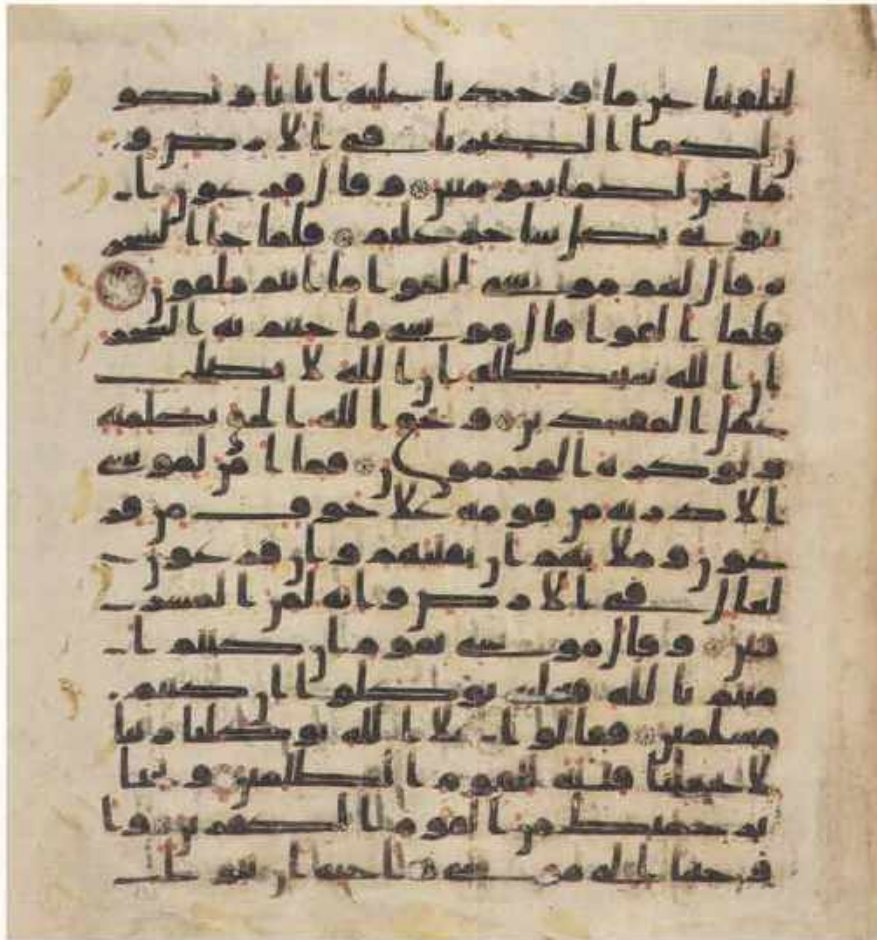 لتلفتنا عما وجدنا عليه ابانا وتكو
ن لكما الكبريا في الارض و
ما نحن لكما بمومنين وقال فرعون ا
يتوني بكل ساحر عليم فلما جا السحر
ة قال لهم موسى القوا ما انتم ملقون
فلما القوا قال موسى ما جيتم به السحر
ان الله سيبطله ان الله لا يصلح
عمل المفسدين ويحق الله الحق بكلمته
ولو كره المجرمون فما امن لموسى
الا ذرية من قومه على خوف من فر
عون وملايهم ان يفتنهم وان فرعون
لعال في الارض وانه لمن المسر
فين وقال موسى يقوم ان كنتم ا
منتم بالله فعليه توكلوا ان كنتم
مسلمين فقالوا على الله توكلنا ربنا
لا تجعلنا فتنة للقوم الظلمين ونجنا
برحمتك من القوم الكفرين وا
وحينا الى موسى واخيه ان تبوا